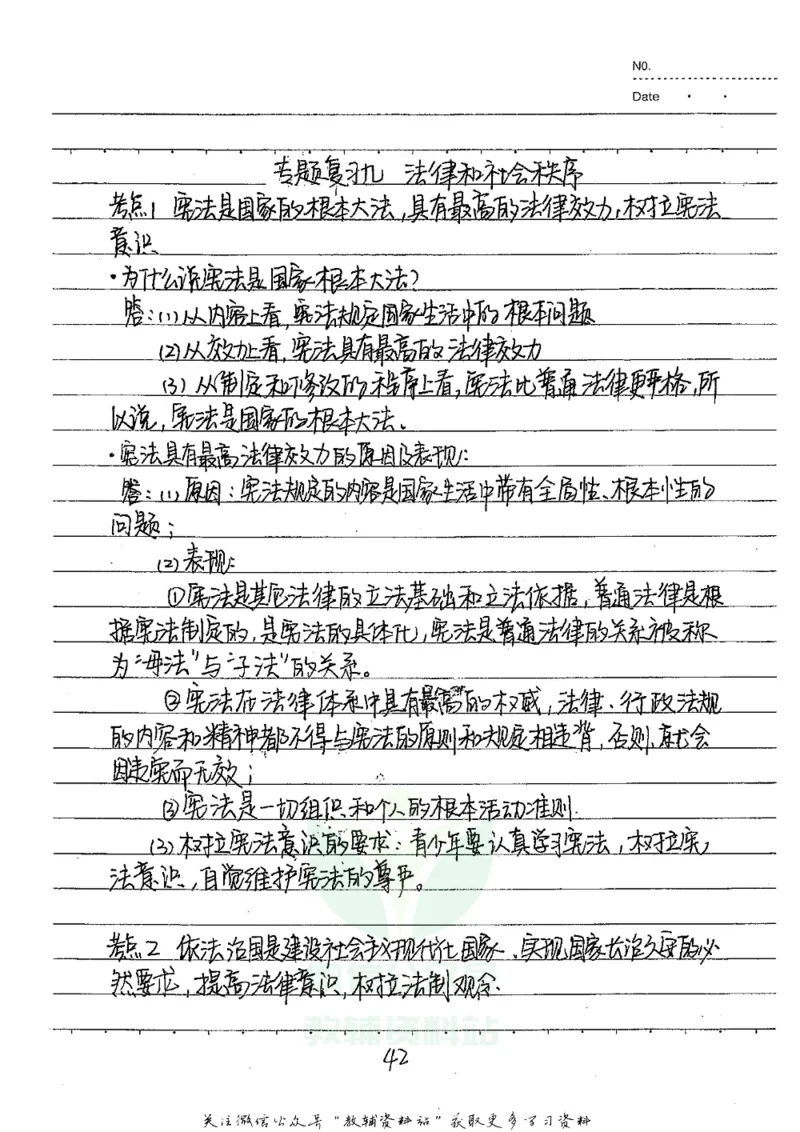 NO.
Date
专题复习九 法律和社会秩序
考点1 宪法是国家的根本大法,具有最高的法律效力,树立宪法
意识
·为什么说宪法是国家根本大法?
答:(1)从内容上看,宪法规定国家生活中的根本问题
(2)从效力上看,宪法具有最高的法律效力
(3)从制定和修改的程序上看,宪法比普通法律更严格,所
以说,宪法是国家的根本大法。
·宪法具有最高法律效力的原因及表现:
答:(1)原因:宪法规定的内容是国家生活中带有全局性、根本性的
问题;
(2)表现:
①宪法是其他法律的立法基础和立法依据,普通法律是根
据宪法制定的,是宪法的具体化,宪法是普通法律的关系被称
为“母法”与“子法”的关系。
②宪法在法律体系中具有最高的权威,法律、行政法规
的内容和精神都不得与宪法的原则和规定相违背,否则,就会
因违宪而无效;
③宪法是一切组织和个人的根本活动准则.
(3)树立宪法意识的要求:青少年要认真学习宪法,树立宪
法意识,自觉维护宪法的尊严。
考点2 依法治国是建设社会主义现代化国家、实现国家长治久安的必
然要求,提高法律意识,树立法制观念.
教辅资料站
42
关注微信公众号“教辅资料站”获取更多学习资料